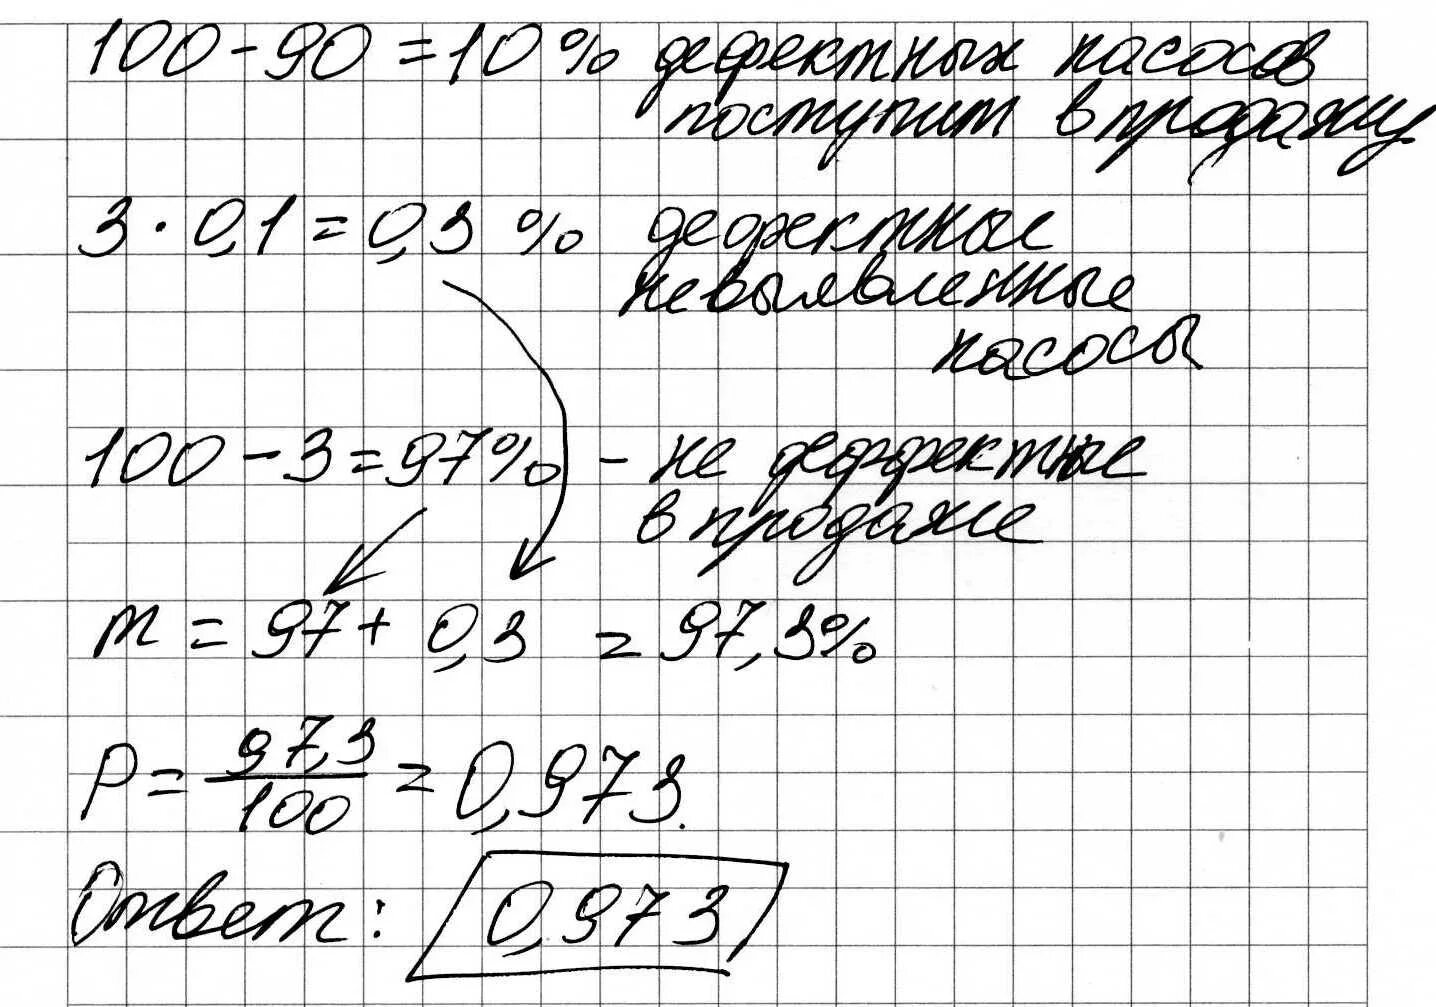 100 - 90 = 10% дефектных насосов
поступит в продажу
3 · 0,1 = 0,3 % дефектные
невыявленные
насосы
100 - 3 = 97% - не деффектные
в продаже
m = 97 + 0,3 = 97,3%
P = 97,3/100 = 0,973.
Ответ: 0,973